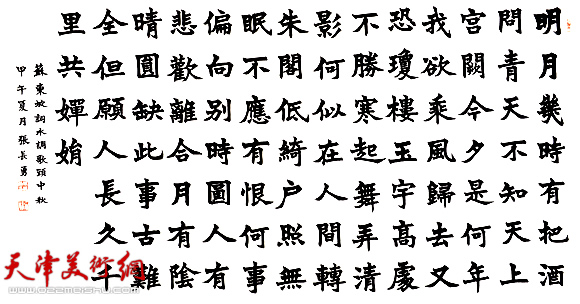 明月幾時有把酒
問青天不知天上
宮闕今夕是何年
我欲乘風歸去又
恐瓊樓玉宇高處
不勝寒起舞弄清
影何似在人間轉
朱閣低綺户照無
眠不應有恨何事
偏向别時圓人有
悲歡離合月有陰
晴圓缺此事古難
全但願人長久千
里共嬋娟
蘇東坡詞水調歌頭中秋
甲午夏月張長勇
天津美術網